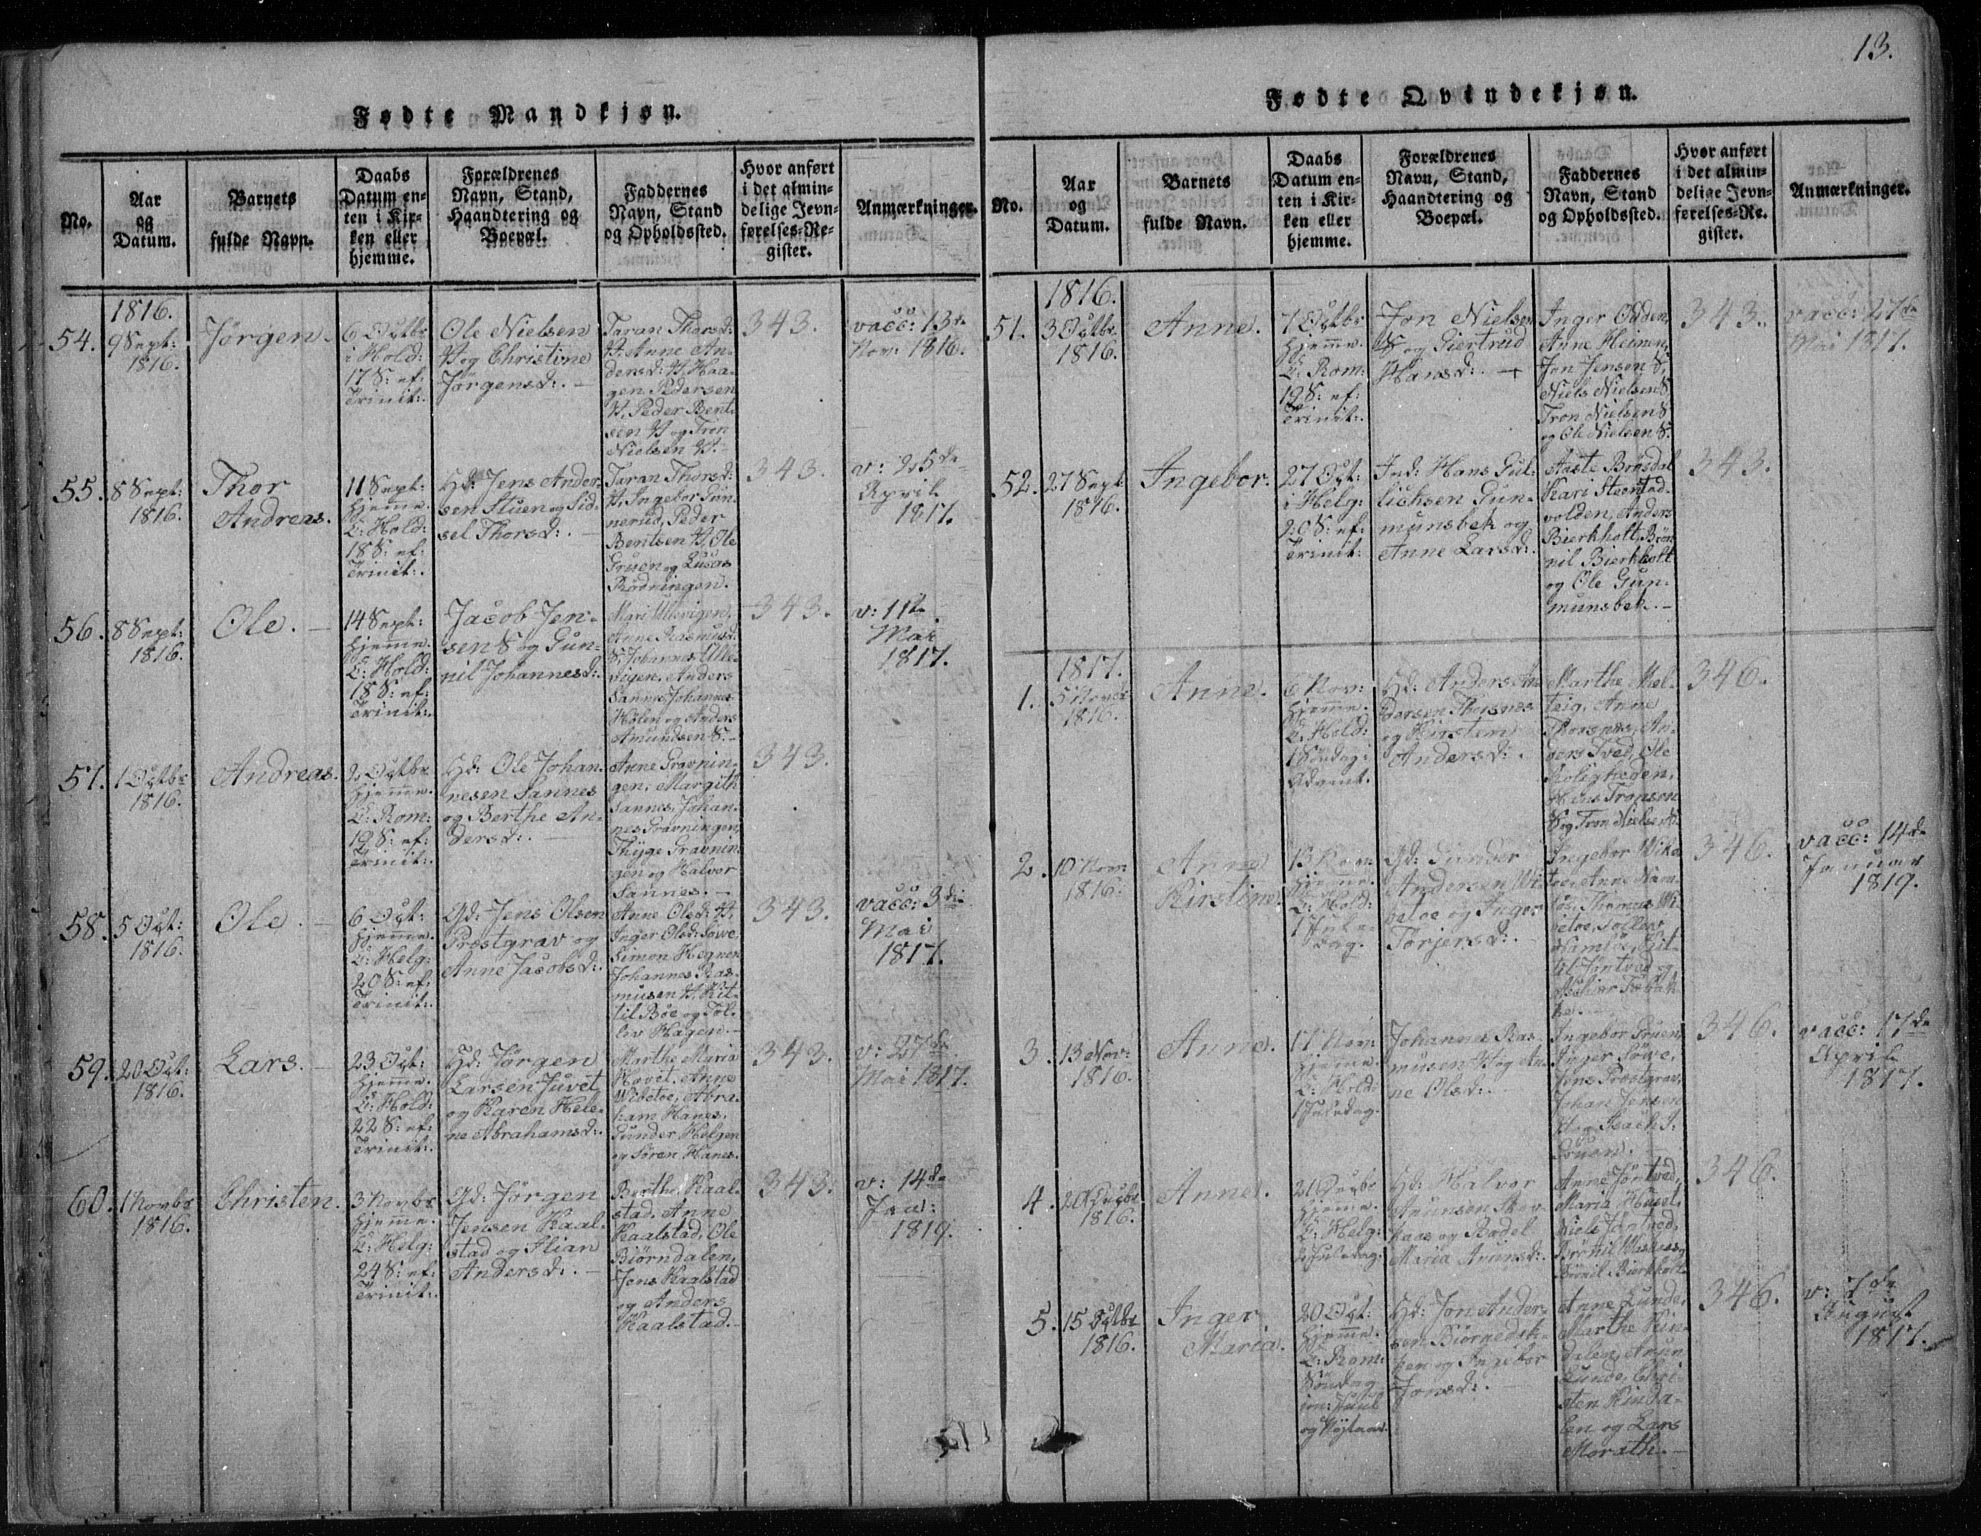 13.
Fødte Mandkjøn.
No.
Aar
og
Datum.
Barnets
fulde Navn.
Daabs
Datum en-
ten i Kir-
ken eller
hjemme.
Forældrenes
Navn, Stand,
Haandtering og
Boepæl.
Faddernes
Navn, Stand
og Opholdssted.
Hvor anført
i det almin-
delige Jevn-
førelses-Re-
gister.
Anmærkninger.
1816.
54.
9 Sept:
1816.
Jørgen.
6 Octbr
i Hold:
17 S: ef:
Trinit:.
Ole Nielsen
og Christine
Jørgensd:.
Taran Thorsd:
Anne An-
dersd: Haa-
gen Pedersen
Peder Bent-
sen og Tron
Nielsen
343.
vacc: 13de
Nov: 1816.
55.
8 Sept:
1816.
Thor
Andreas.
11 Sept:
hjemme.
C: Hold:
18 S: ef:
Trinit:.
Hd: Jens Ander-
sen Stuen og Sid-
sel Thorsd:.
Taran Thorsd:
Ingebor Gun-
nerud, Peder
Bentsen Ole
Gruen og
Rødningen.
343.
v: 25de
April
1817.
56.
8 Sept:
1816.
Ole.
14 Sept:
hjemme.
C: Hold:
18 S: ef:
Trinit:.
Jacob Jen-
sen S og Gun-
nil Johannesd:.
Mari Ullevigen,
Anne Rasmusd:
S, Johannes Ulle-
vigen, Anders
Sannes, Johannes
Holen og Anders
Amundsen S.
343.
v: 11te
Mai
1817.
57.
1 Octbr
1816.
Andreas.
2 Octbr
hjemme.
C: Rom:
19 S: ef:
Trinit:.
Hd: Ole Johan-
nesen Sannes
og Berthe An-
dersd:.
Anne Gravnin-
gen, Margith
Sannes, Johan-
nes Gravningen,
Thyge Gravnin-
gen og Halvor
Sannes.
343.
58.
5 Oct:
1816.
Ole.
6 Oct:
hjemme.
C: Helg:
20 S: ef:
Trinit:.
Gd: Jens Olsen
Præstgrav og
Anne Jacobsd:.
Anne Olsd:
Inger Olsd: Sowe,
Simon Hegnen
Johannes Ras-
musen Kit-
til Bøe og Tol-
lev Hagen.
343.
vacc: 3die
Mai
1817.
59.
20 Oct:
1816.
Lars.
23 Oct:
hjemme.
C: Hold:
22 S: ef:
Trinit:.
Hd: Jørgen
Larsen Juvet
og Karen Hele-
ne Abrahamsd:.
Marthe Maria
Hovet, Anne
Wibetoe, Abra-
ham Hanes,
Gunder Helgen
og Søren Hanes.
343.
v: 27de
Mai 1817.
60.
1 Novbr
1816.
Christen.
3 Novbr
hjemme.
C: Helg:
24 S: ef:
Trinit:.
Gd: Jørgen
Jensen Kaal-
stad og Ilian
Andersd:.
Berthe Kaal-
stad, Anne
Kaalstad, Ole
Biørndalen,
Jens Kaalstad
og Anders
Kaalstad.
343.
v: 14de
Jan:
1819.
Fødte Qvindekjøn.
No.
Aar
og
Datum.
Barnets
fulde Navn.
Daabs
Datum en-
ten i Kir-
ken eller
hjemme.
Forældrenes
Navn, Stand,
Haandtering og
Boepæl.
Faddernes
Navn, Stand
og Opholdssted.
Hvor anført
i det almin-
delige Jevn-
førelses-Re-
gister.
Anmærkninger.
1816.
51.
3 Octbr
1816.
Anne.
7 Octbr
hjemme.
C: Rom:
19 S: ef:
Trinit:.
Jon Nielsen
S og Giertrud
Hansd:.
Inger
Anne Heinen,
Jon Jensen S,
Niels Nielsen S
Tron Nielsen S
og Ole Nielsen S.
343.
vacc: 27de
Mai 1817.
52.
27 Sept
1816.
Ingebor.
27 Oct:
i Helg:
20 S: ef:
Trinit:
Ind: Hans Gul-
lichsen Gun-
munsbek og
Anne Larsd:.
Aaste Bronsdal
Kari Steenstad-
volden, Anders
Bierkholt, Brøn-
nil Bierkholt
og Ole Gun-
munsbek.
343.
1817.
1.
5 Novbr
1816.
Anne.
6 Nov:
hjemme.
C: Hold:
1 Søndag i
Advent.
Hd: Anders An-
dersen Thorsnes
og Kirsten
Andersd:.
Marthe Mel-
teig, Anne
Thorsnes, An-
ders Tved, Ole
Roligheden,
Hans Tronsen
S og Tron Nielsen S.
346.
2.
10 Nov
1816.
Anne
Kirstine.
13 Nov
hjemme.
C: Hold:
1 Jule-
dag.
Gd: Gunder
Andersen Wi-
betoe og Inger
Torjersd:.
Ingebor Wibe-
toe, Anne Nam-
løs, Thomas Wi-
betoe, Tollev
Namløs, Kit-
til Jøntved og
346.
vacc: 14de
Januar
1819.
3.
13 Nov:
1816.
Anne.
17 Nov
hjemme.
C: Hold:
1 Juledag.
Johannes Ras-
musen og An-
ne Olsd:.
Ingebor Gruen,
Inger Sowe,
Jens Præstgrav,
Johan Jensen
og Isach I:
Gruen.
346.
vacc: 17de
April
1817.
4.
1816.
Anne.
21
hjemme.
C: Helg:
Juledag.
Hd: Halvor
Aamunsen
og Bodel
Maria
Anne Jøntved,
Maria
Niels Jøntved,
Brønil Bierkholt
346.
5.
15 Octbr
1816.
Inger
Maria.
20 Oct:
hjemme.
C: Rom:
Søndag
og Nytaar.
Hd: Jon Ander-
sen Biørnedok-
ken og Ingebor
Jonsd:.
Anne Lunde,
Marthe Rin-
dalen, Amun
Lunde, Chri-
sten Rinda-
len og Lars
Morath.
346.
v: 7de
August
1817.